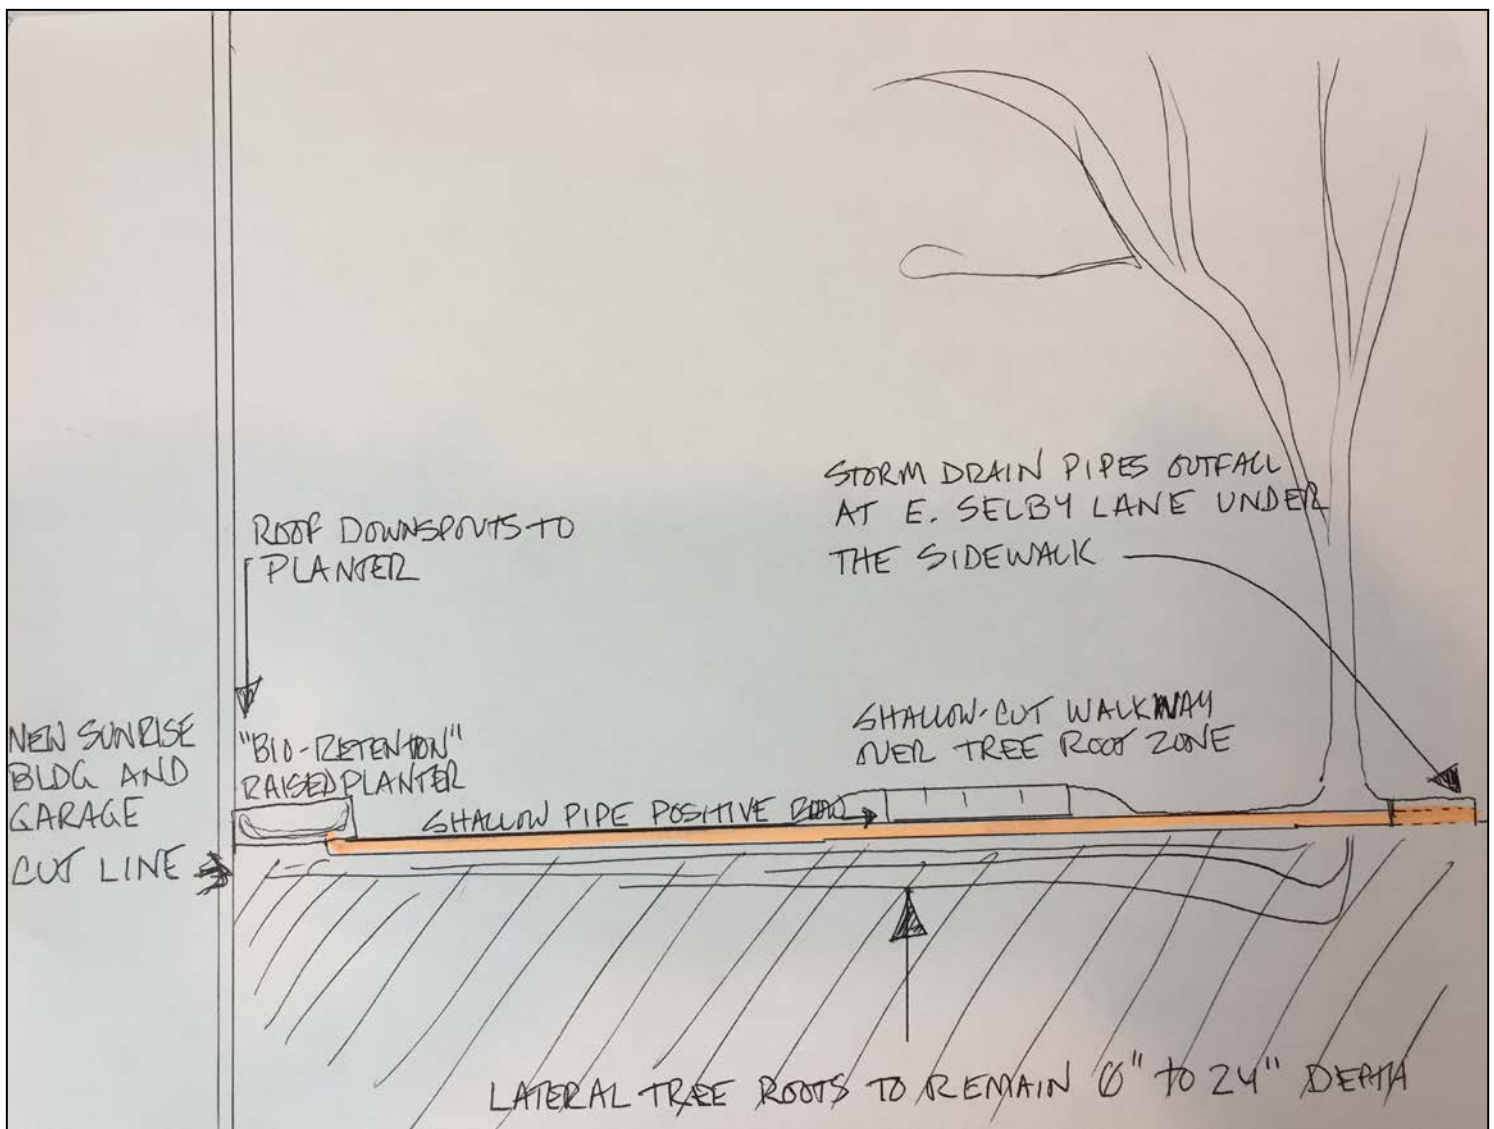 STORM DRAIN PIPES OUTFALL
AT E. SELBY LANE UNDER
THE SIDEWALK
ROOF DOWNSPOUTS TO
PLANTER
NEW SUNRISE
BLDG AND
GARAGE
CUT LINE
"BIO-RETENTION"
RAISED PLANTER
SHALLOW-CUT WALKWAY
OVER TREE ROOT ZONE
SHALLOW PIPE POSITIVE
LATERAL TREE ROOTS TO REMAIN 6" TO 24" DEPTH